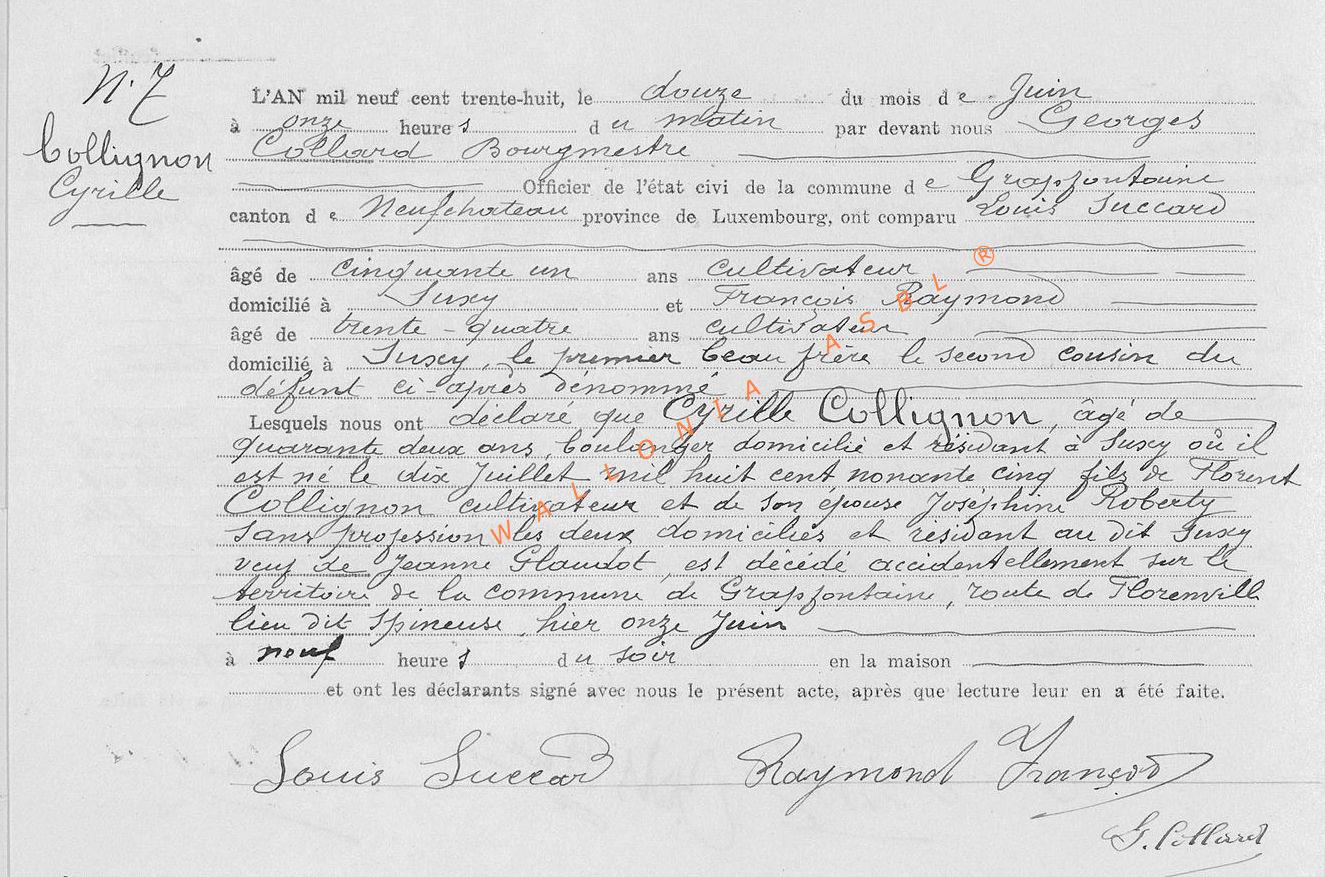 N. 7
Collignon
Cyrille
L'AN mil neuf cent trente-huit, le douze du mois de Juin
à onze heures du matin par devant nous Georges
Collard Bourgmestre
Officier de l'état civi de la commune de Grapfontaine
canton de Neufchateau province de Luxembourg, ont comparu Louis Succard
âgé de cinquante un ans cultivateur
domicilié à Suxy et François Raymond
âgé de trente-quatre ans cultivateur
domicilié à Suxy, le premier beau frère le second cousin du
défunt ci-après dénommé
Lesquels nous ont déclaré que Cyrille Collignon, âgé de
quarante deux ans, boulanger domicilié et résidant à Suxy où il
est né le dix Juillet mil huit cent nonante cinq fils de Florent
Collignon cultivateur et de son épouse Joséphine Roberty
sans profession les deux domiciliés et résidant au dit Suxy
veuf de Jeanne Glaudot, est décédé accidentellement sur le
territoire de la commune de Grapfontaine, route de Florenville
lieu dit Spineuse, hier onze Juin
à neuf heures du soir en la maison
et ont les déclarants signé avec nous le présent acte, après que lecture leur en a été faite.
Louis Succard Raymond François
G. Collard
WALLONIA ASBL ®